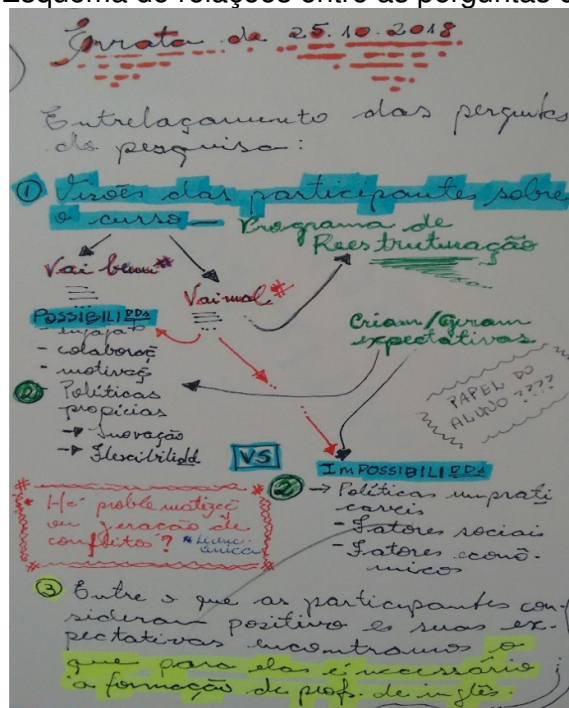 Esquema de relações entre as perguntas
Errata de 25.10.2018
Entrelaçamento das perguntas
de pesquisa:
① Visões das participantes sobre
o curso — Programa de
Reestruturação
Vai bem *
Vai mal *
POSSIBILIDDS
- engaja
- colaboraç
- motivaç
② Políticas
propícias
→ Inovação
→ Flexibilidd
Criam/Geram
expectativas
PAPEL DO
ALUNO ????
VS
IMPOSSIBILIDDS
② → Políticas imprati
cáveis
- Fatores sociais
- Fatores econô-
micos
Há problematizaç
ou geração de
conflitos? * Licenc.
única
③ Entre o que as participantes con-
sideram positivo e suas ex-
pectativas encontramos o
que para elas é necessário
à formação de profs. de inglês.